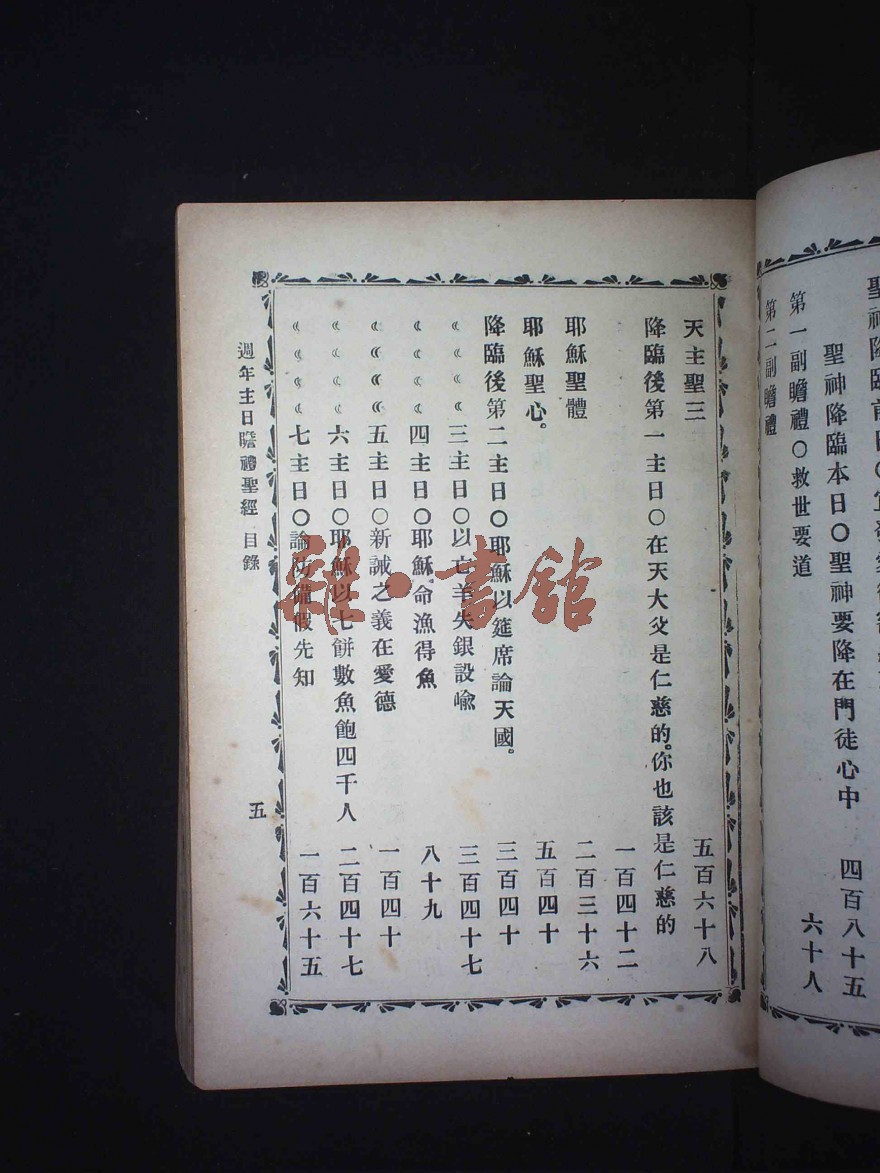 聖神降臨本日〇聖神要降在門徒心中 四百八十五
第一副瞻禮〇救世要道 六十八
第二副瞻禮
天主聖三 五百六十八
降臨後第一主日〇在天大父是仁慈的。你也該是仁慈的 一百四十二
耶穌聖體 二百三十六
耶穌聖心。 五百四十一
降臨後第二主日〇耶穌以筵席論天國。 三百四十
《《《《三主日〇以亡羊失銀設喩 三百四十七
《《《《四主日〇耶穌。命漁得魚 八十九
《《《《五主日〇新誡之義在愛德 一百四十
《《《《六主日〇耶穌以七餅數魚飽四千人 二百四十七
《《《《七主日〇論防備假先知 一百六十五
週年主日瞻禮聖經 目錄 五
雜·書館